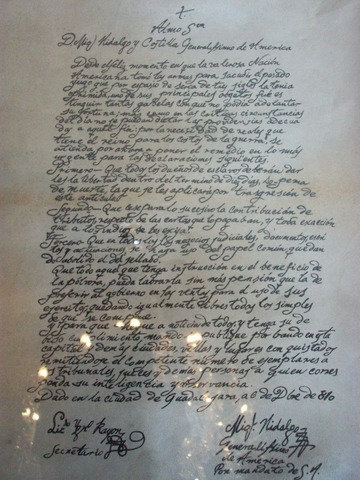 D. Miguel Hidalgo y Costilla Generalísimo de America
Desde el feliz momento en que la valerosa Nación
Americana tomó las armas para sacudir el pesado
yugo que por espacio de cerca de tres siglos la tenia
oprimida, uno de sus principales objetos fué es
tinguir tantas gabelas con que no podia adelantar
su fortuna; mas como en las criticas circunstancias
del dia no se puedan dictar las providencias adecua
das a aquel fin: por la necesidad de reales que
tiene el reino para los costos de la guerra, se
atienda por ahora a poner el remedio en lo mas
urgente para las declaraciones siguientes
Primera = Que todos los dueños de esclavos deberán dar
les la libertad dentro del término de diez días, so pena
de muerte, la que se les aplicará por transgresión de
este artículo.
Segunda = Que cese para lo sucesivo la contribución de
tributos, respeto de las castas que lo pagaban, y toda exacción
que a los indios se les exija
Tercero = Que en todos los negocios judiciales, documentos, escri
turas y actuaciones, se haga uso del papel común, quedan
do abolido el del sellado.
Que todo aquel que tenga instrucción en el beneficio de
la pólvora, pueda labrarla sin mas pensión que la de
preferir al gobierno en las ventas para el uso de sus
ejercitos, quedando igualmente libres todos los simples
de que se compone.
Y para que llegue a noticia de todos y tenga su de
bido cumplimiento, mando se publique por bando en esta
capital y demas ciudades, villas y lugares conquistados
remitiendose el competente número de ejemplares a
los tribunales, jueces y demas personas a quien corres
ponda su inteligencia y observancia.
Dado en la ciudad de Guadalajara, a 6 de Dbre de 810
Miql. Hidalgo
Generalísimo
de America
Por mandato de S. A.
Secretario